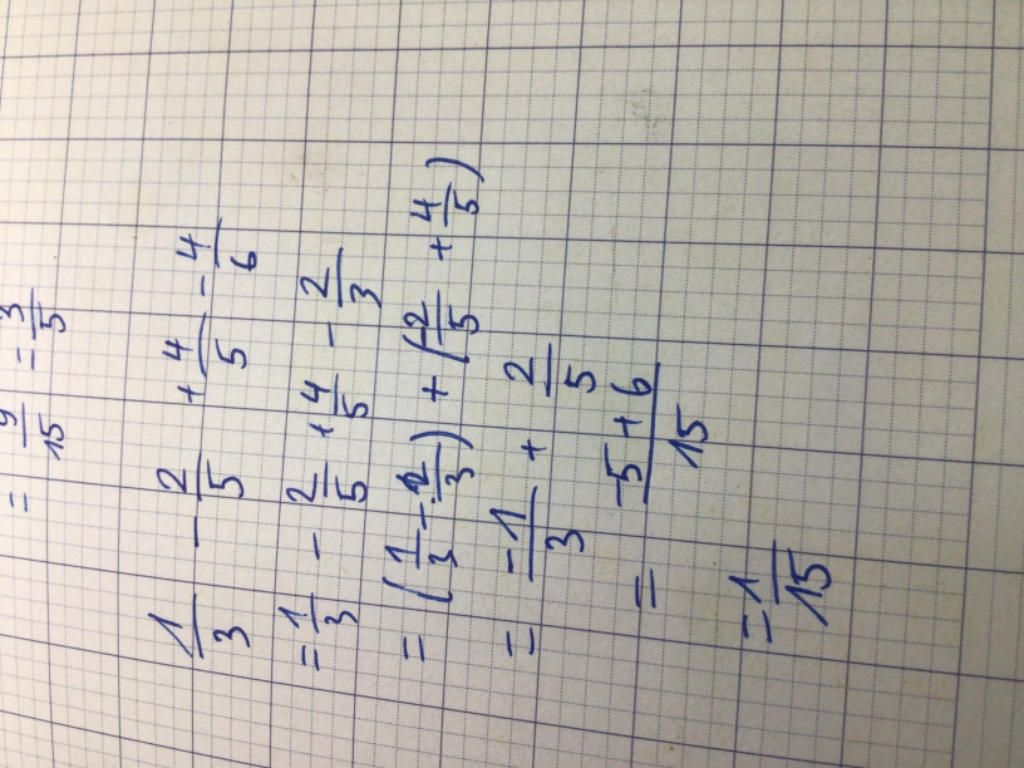 = 9/15 = 3/5
1/3 - 2/5 + 4/5 - 4/6
= 1/3 - 2/5 + 4/5 - 2/3
= (1/3 - 2/3) + (2/5 + 4/5)
= -1/3 + 2/5
= -5 + 6/15
= 1/15